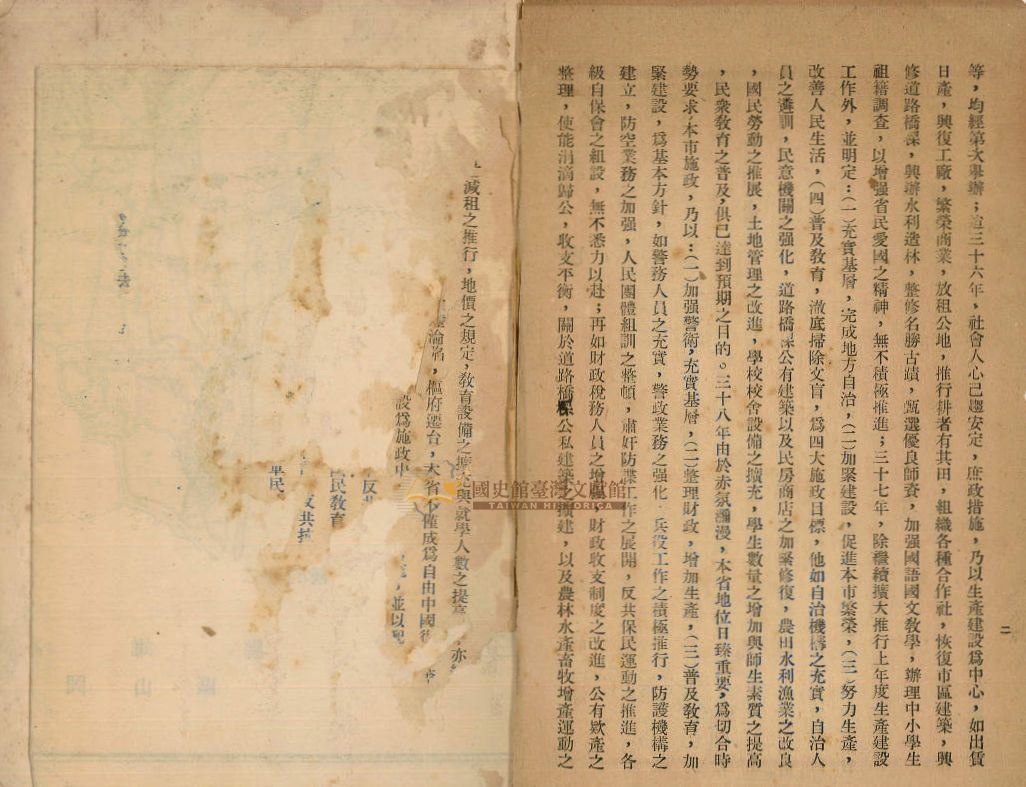 等，均經第次舉辦；迨三十六年，社會人心已趨安定，庶政措施，乃以生產建設爲中心，如出賃
日產，興復工廠，繁榮商業，放租公地，推行耕者有其田，組織各種合作社，恢復市區建築，興
修道路橋樑，興辦水利造林，整修名勝古蹟，甄選優良師資，加强國語國文敎學，辦理中小學生
祖籍調查，以增强省民愛國之精神，無不積極推進；三十七年，除繼續擴大推行上年度生產建設
工作外，並明定：（一）充實基層，完成地方自治，（二）加緊建設，促進本市繁榮，（三）努力生產，
改善人民生活，（四）普及敎育，澈底掃除文盲，爲四大施政目標，他如自治機構之充實，自治人
員之遴訓，民意機關之强化，道路橋樑公有建築以及民房商店之加緊修復，農田水利漁業之改良
，國民勞動之推展，土地管理之改進，學校校舍設備之擴充，學生數量之增加與師生素質之提高
，民衆敎育之普及，俱已達到預期之目的。三十八年由於赤氛瀰漫，本省地位日臻重要，爲切合時
勢要求，本市施政，乃以：（一）加强警衛，充實基層，（二）整理財政，增加生產，（三）普及敎育，加
緊建設，爲基本方針，如警務人員之充實，警政業務之强化，兵役工作之積極推行，防護機構之
建立，防空業務之加强，人民團體組訓之整頓，肅奸防諜工作之展開，反共保民運動之推進，各
級自保會之組設，無不悉力以赴；再如財政稅務人員之增强，財政收支制度之改進，公有欵產之
整理，使能涓滴歸公，收支平衡，關於道路橋樑公私建築之擴建，以及農林水產畜牧增產運動之
減租之推行，地價之規定，敎育設備之擴充與就學人數之提高，亦
淪陷，樞府遷台，本省不僅成爲自由中國復
設爲施政中
，並以配
反共
民敎育
反共抗
里民
二
國史館臺灣文獻館
TAIWAN HISTORICA